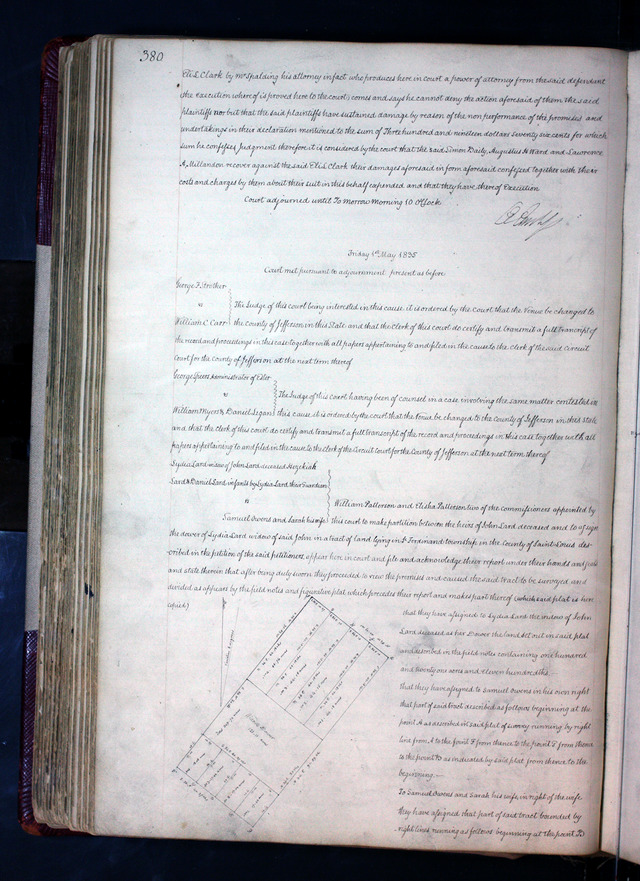 380
Eli L Clark by Mr Spalding his attorney in fact who produces here in court a power of attorney from the said defendant
the execution whereof is proved here to the court, comes and says he cannot deny the action aforesaid of them the said
plaintiffs nor but that the said plaintiffs have sustained damage by reason of the non performance of the promises and
undertakings in their declaration mentioned to the sum of Three hundred and nineteen dollars seventy six cents for which
sum he confesses Judgment therefore it is considered by the court that the said Simon Baily, Augustus H Ward and Lawrence
A, Millandon recover against the said Eli L Clark their damages aforesaid in form aforesaid confessed together with their
costs and charges by them about their suit in this behalf expended and that they have thereof Execution
Court adjourned until To Morrow Morning 10 O'Clock
Friday 1st May 1835
Court met pursuant to adjournment present as before
George F. Strother
vs
The Judge of this court being interested in this cause it is ordered by the Court that the Venue be changed to
William C. Carr
the county of Jefferson in this State and that the clerk of this court do certify and transmit a full transcript of
the record and proceedings in this case together with all papers appertaining to and filed in the cause to the clerk of the said circuit
Court for the county of Jefferson at the next term thereof
George Speers Administrator of
v
The Judge of this court having been of counsel in a case involving the same matter contested in
William Myers & Daniel
this cause it is ordered by the court that the Venue be changed to the County of Jefferson in this state
and that the clerk of this court do certify and transmit a full transcript of the record and proceedings in this case together with all
papers appertaining to and filed in the cause to the clerk of the circuit court for the County of Jefferson at the next term thereof
Lydia Lard widow of John Lard deceased Hezekiah
Lard & Daniel Lard infants by Lydia Lard their Guardian
vs
William Patterson and Elisha Patterson two of the commissioners appointed by
Samuel Owens and Sarah his wife
this court to make partition between the heirs of John Lard deceased and to assign
the dower of Lydia Lard widow of said John in a tract of land lying in St Ferdinand township in the County of Saint Louis des-
cribed in the petition of the said petitioners, appear here in court and file and acknowledge their report under their hands and seals
and state therein that after being duly sworn they proceeded to view the premises and caused the said tract to be surveyed and
devided as appears by the field notes and figurative plat which precedes their report and makes part thereof (which said plat is here
copied)
that they have assigned to Lydia Lard the widow of John
Lard deceased as her Dower the land set out on said plat
and described in the field notes containing one hundred
and twenty one acres and eleven hundredths.
that they have assigned to Samuel Owens in his own right
that part of said tract described as follows beginning at the
point A as described in said plat of survey running by right
line from A to the point F from thence to the point T from thence
to the point D as indicated by said plat from thence to the
beginning.
To Samuel Owens and Sarah his wife, in right of the wife
they have assigned that part of said tract bounded by
right lines running as follows beginning at the point D